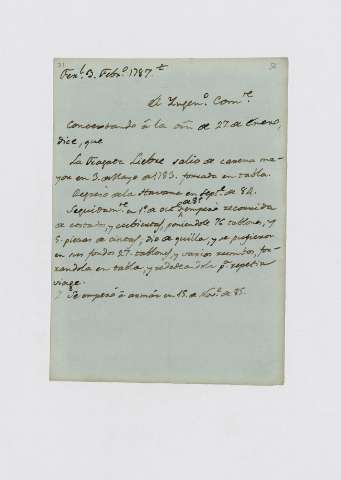 Ferl. 3. Febro. 1787.
El Yngeno. Come.
Contextando á la orn de 27 de Enero,
dice, que
La Fragata Liebre salio de carena ma-
yor en 3. de Mayo de 1783. forrada en tabla.
Regresó de la Havana en Septe. de 84.
Seguidamte. en 1o. de oct. de 84 empezó recorrida
de costados, y cubiertas, poniendole 76 tablones, y
5. piezas de cintas, dio de quilla, y se pusieron
en sus fondos 27. tablones, y varios rumbos, for-
randola en tabla, y
viage.
Se empezó á armar en 15. de Novre. de 85.